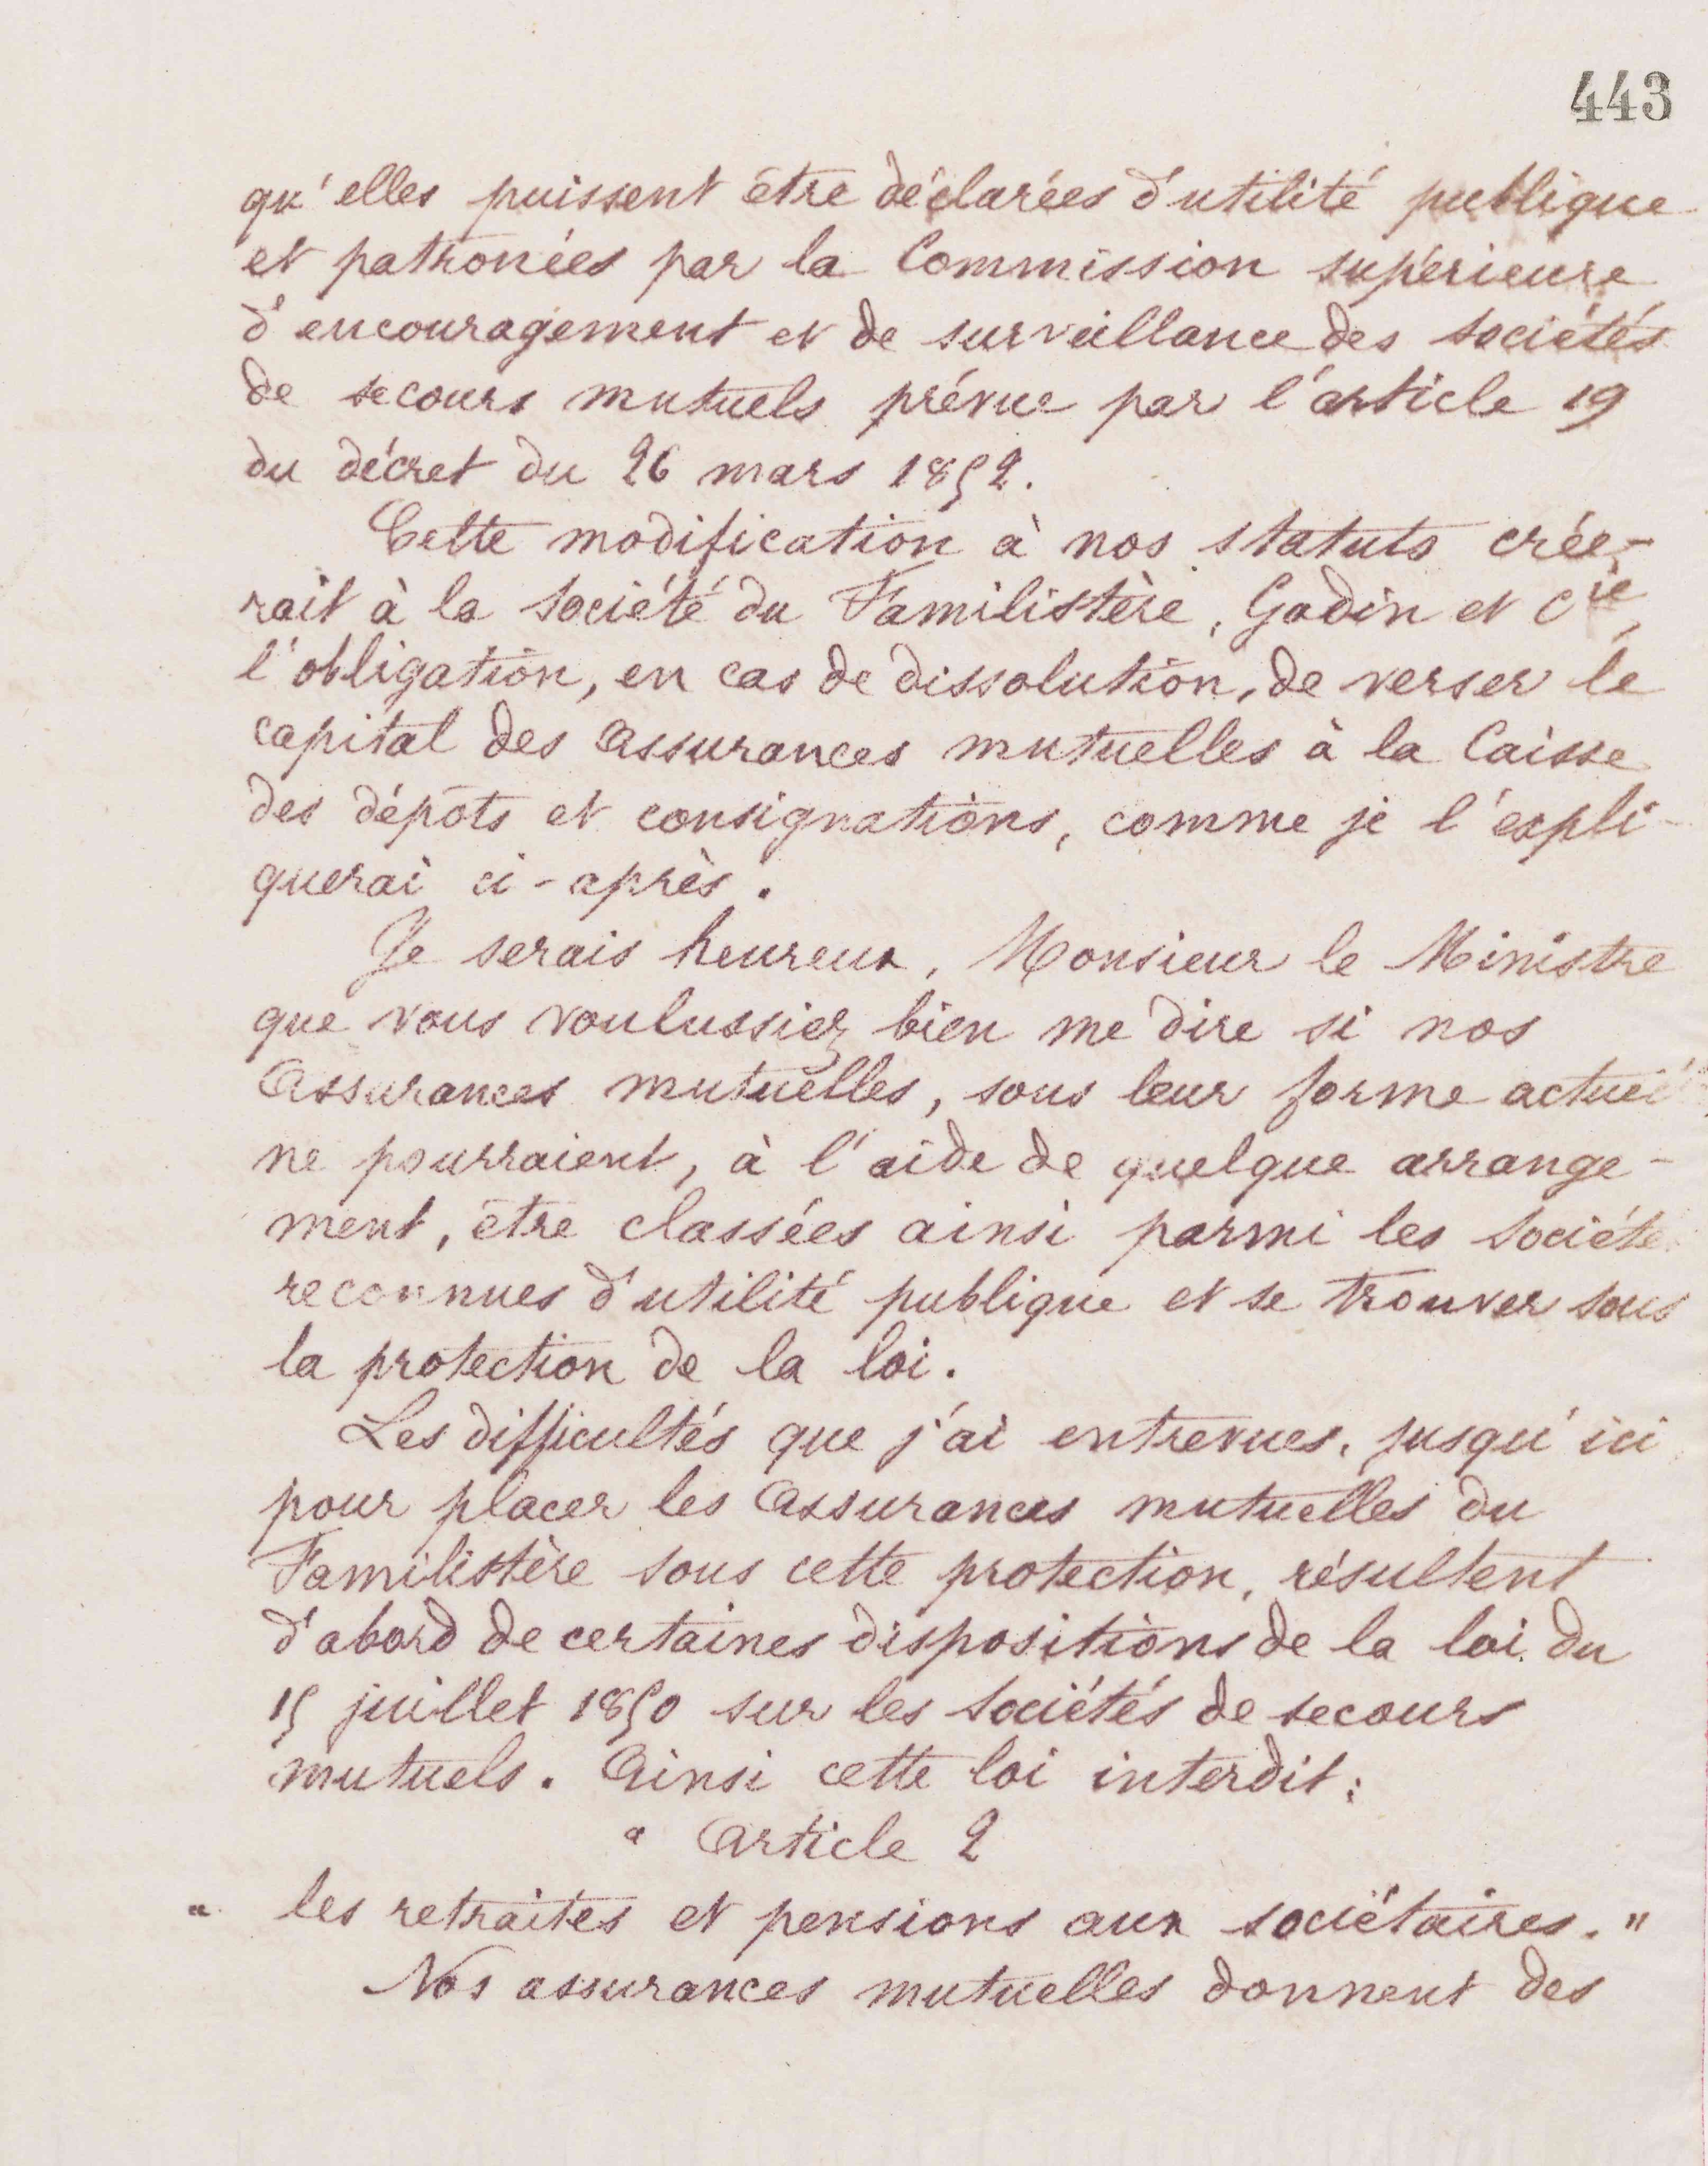 443
qu'elles puissent être déclarées d'utilité publique
et patronées par la Commission supérieure
d'encouragement et de surveillance des sociétés
de secours mutuels prévue par l'article 19
du décret du 26 mars 1852.
Cette modification à nos statuts crée-
rait à la société du Familistère, Godin et Cie,
l'obligation, en cas de dissolution, de verser le
capital des Assurances mutuelles à la Caisse
des dépôts et consignations, comme je l'expli-
querai ci-après.
Je serais heureux, Monsieur le Ministre
que vous voulussiez bien me dire si nos
Assurances mutuelles, sous leur forme
ne pourraient, à l'aide de quelque arrange-
ment, être classées ainsi parmi les société
reconnues d'utilité publique et se trouver sous
la protection de la loi.
Les difficultés que j'ai entrevues, jusqu'ici
pour placer les Assurances mutuelles du
Familistère sous cette protection, résultent
d'abord de certaines dispositions de la loi du
15 juillet 1850 sur les sociétés de secours
mutuels. Ainsi cette loi interdit:
" Article 2
" les retraites et pensions aux sociétaires. "
Nos assurances mutuelles donnent des